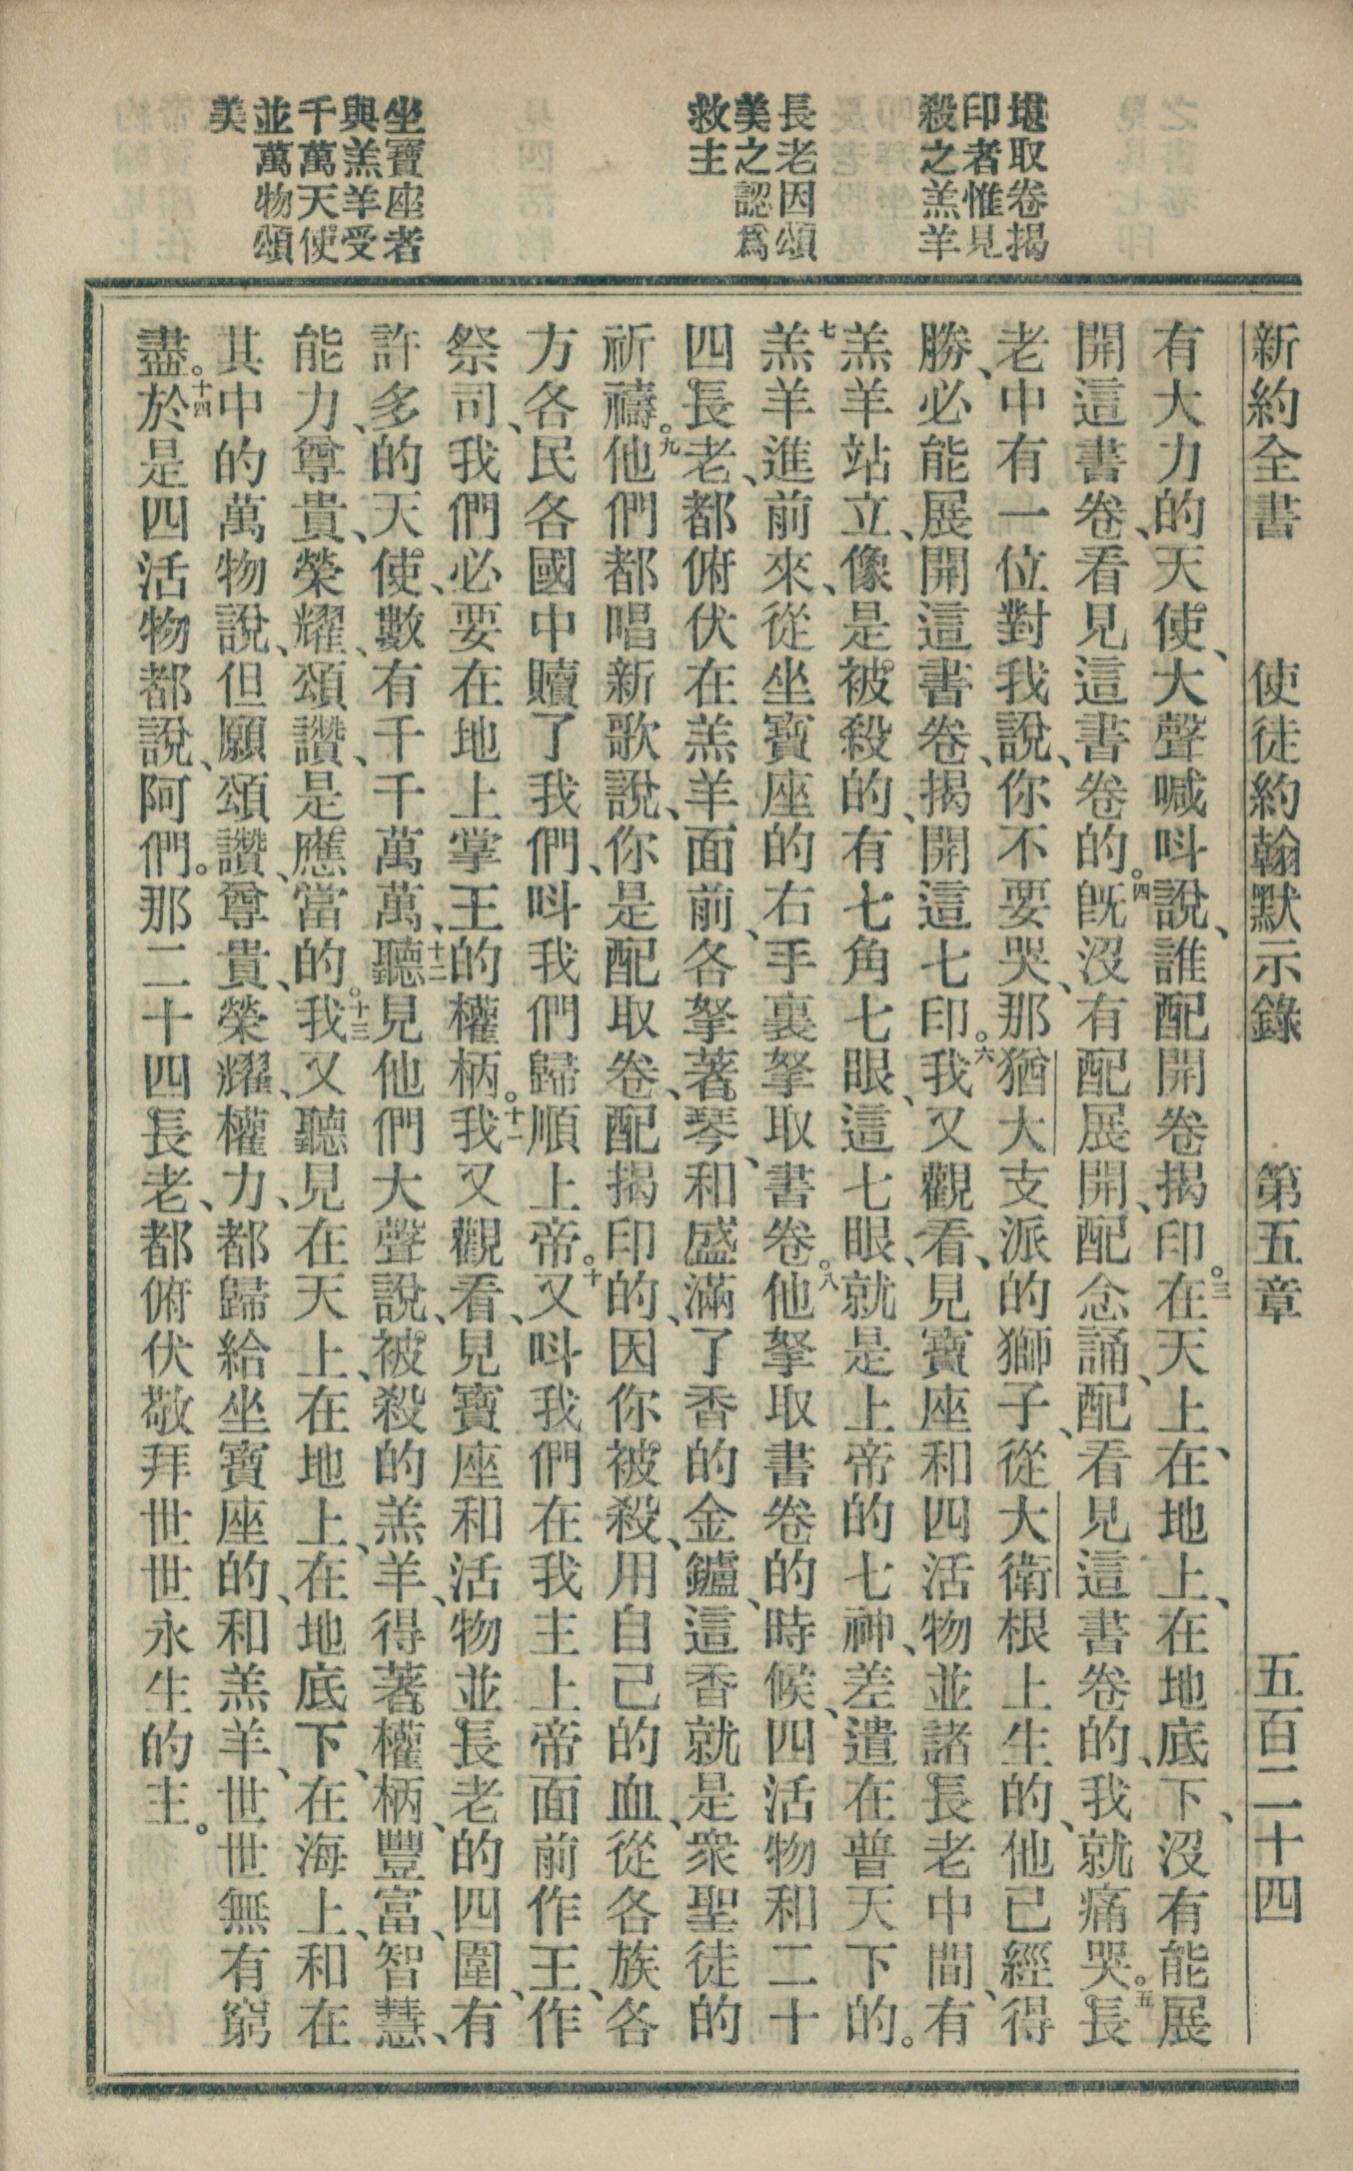 新約全書 使徒約翰默示錄 第五章 五百二十四
堪取卷揭
印者惟見
殺之羔羊
長老因頌
美之認爲
救主
坐寶座者
與羔羊受
千萬天使
並萬物頌
美
有大力的天使、大聲喊呌說、誰配開卷揭印。三在天上、在地上、在地底下、沒有能展
開這書卷、看見這書卷的。四旣沒有配展開、配念誦、配看見這書卷的、我就痛哭。五長
老中有一位對我說、你不要哭、那猶大支派的獅子、從大衛根上生的、他已經得
勝、必能展開這書卷、揭開這七印。六我又觀看、見寶座和四活物並諸長老中間、有
羔羊站立、像是被殺的、有七角七眼、這七眼、就是上帝的七神、差遣在普天下的。
七羔羊進前來、從坐寶座的右手裏拏取書卷。八他拏取書卷的時候、四活物和二十
四長老、都俯伏在羔羊面前、各拏著琴、和盛滿了香的金鑪、這香就是衆聖徒的
祈禱。九他們都唱新歌說、你是配取卷、配揭印的、因你被殺、用自己的血、從各族各
方各民各國中贖了我們、呌我們歸順上帝。十又呌我們在我主上帝面前作王、作
祭司、我們必要在地上掌王的權柄。十一我又觀看、見寶座和活物並長老的四圍、有
許多的天使、數有千千萬萬、十二聽見他們大聲說、被殺的羔羊、得著權柄、豐富、智慧、
能力、尊貴、榮耀、頌讚、是應當的。十三我又聽見在天上、在地上、在地底下、在海上、和在
其中的萬物說、但願頌讚、尊貴、榮耀、權力、都歸給坐寶座的、和羔羊、世世無有窮
盡。十四於是四活物都說、阿們。那二十四長老、都俯伏敬拜世世永生的主。